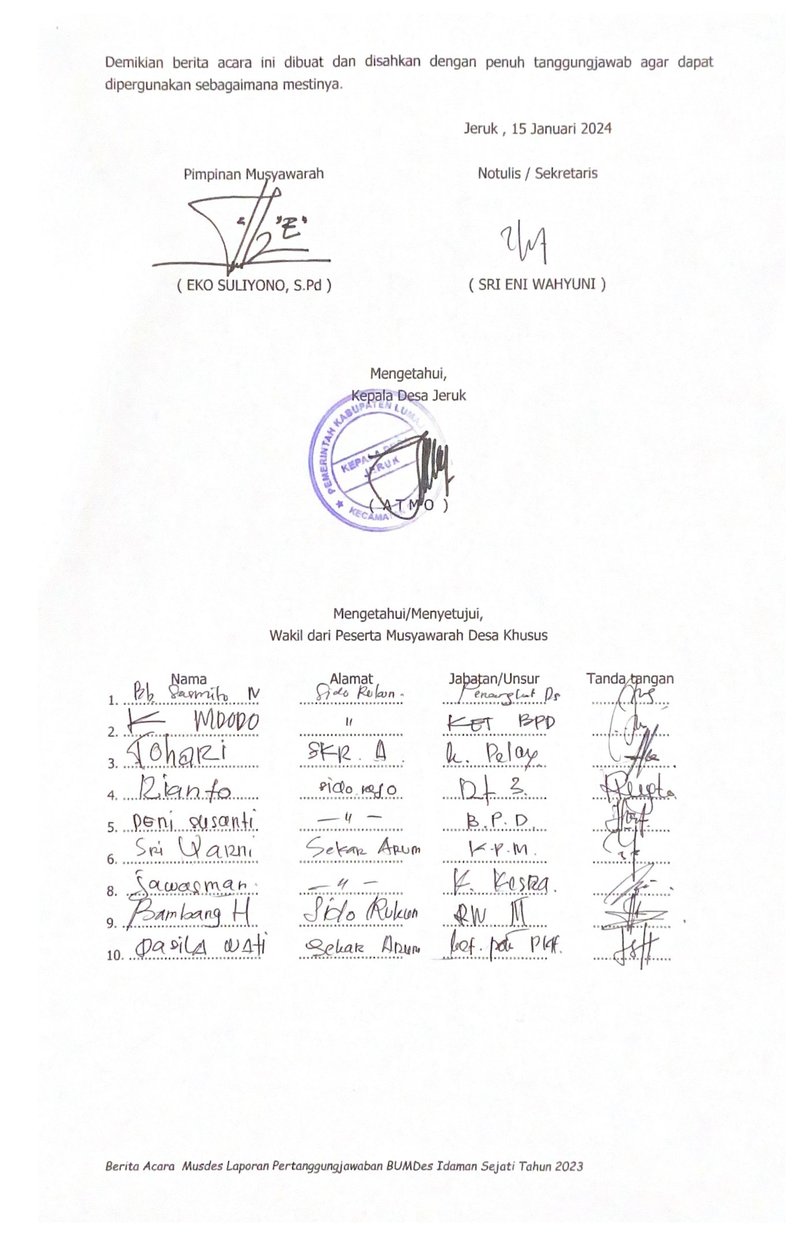 Demikian berita acara ini dibuat dan disahkan dengan penuh tanggungjawab agar dapat
dipergunakan sebagaimana mestinya.
Jeruk , 15 Januari 2024
Pimpinan Musyawarah
Notulis / Sekretaris
( EKO SULIYONO, S.Pd )
( SRI ENI WAHYUNI )
Mengetahui,
Kepala Desa Jeruk
PEMERINTAH KABUPATEN
KEPALA DESA
JERUK
KECAMATAN
( A T M O )
Mengetahui/Menyetujui,
Wakil dari Peserta Musyawarah Desa Khusus
Nama Alamat Jabatan/Unsur Tanda tangan
1. Sarmito IV Sido Rukun
2. " KET BPD
3. Tohari SKR. A
4. Rianto Sido
5. Deni Susanti — " — B.P.D
6. Sri Sekar Arum K.P.M.
8. Sawasman — " — K. Kesra.
9. Bambang H Sido Rukun RW III
10. Sekar Arum
Berita Acara Musdes Laporan Pertanggungjawaban BUMDes Idaman Sejati Tahun 2023